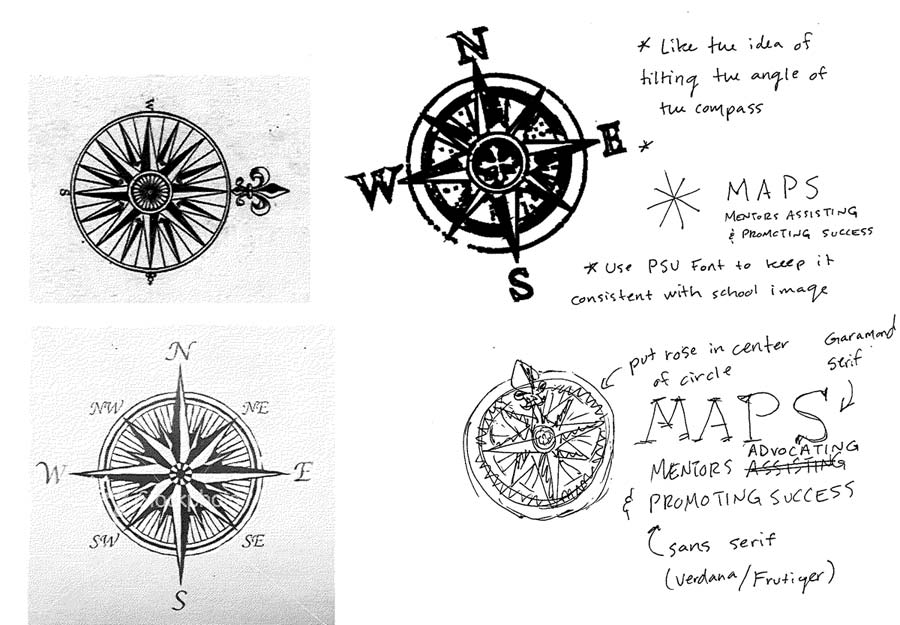 W
S
N
E
W
S
* Like the idea of
tilting the angle of
the compass
*
MAPS
MENTORS ASSISTING
& PROMOTING SUCCESS
* Use PSU Font to keep it
consistent with school image
N
NW
NE
W
E
SW
SE
S
put rose in center
of circle
Garamond
serif
MAPS
ADVOCATING
MENTORS ASSISTING
& PROMOTING SUCCESS
sans serif
(Verdana/Frutiger)